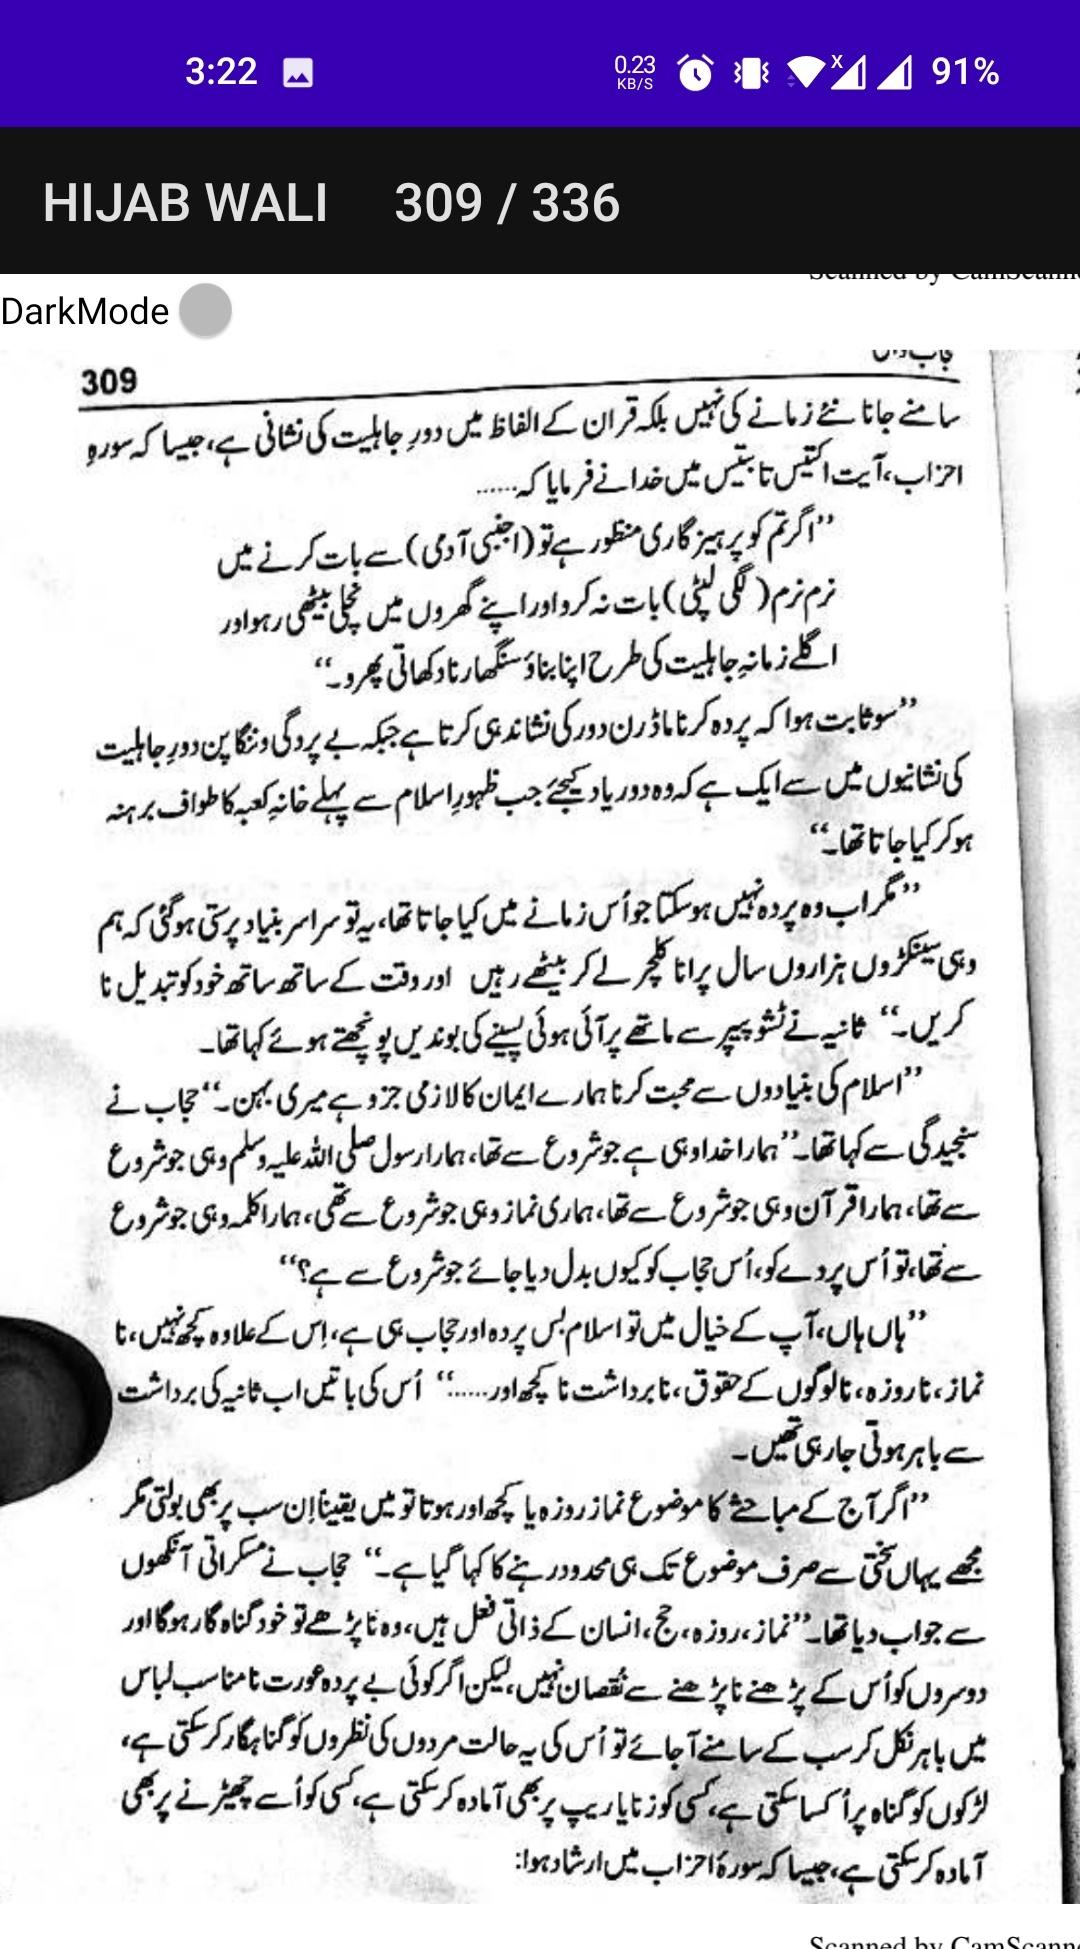 3:22
0.23 KB/S
91%
HIJAB WALI 309 / 336
Scanned by CamScanne
DarkMode
309
سامنے جانا نئے زمانے کی نہیں بلکہ قران کے الفاظ میں دورِ جاہلیت کی نشانی ہے، جیسا کہ سورہِ
احزاب، آیت اکتیس تا بتیس میں خدا نے فرمایا کہ......
”اگر تم کو پرہیز گاری منظور ہے تو (اجنبی آدمی) سے بات کرنے میں
نرم نرم (لگی لپٹی) بات نہ کرو اور اپنے گھروں میں نچلی بیٹھی رہو اور
اگلے زمانہِ جاہلیت کی طرح اپنا بناؤ سنگھار نا دکھاتی پھرو۔“
”سو ثابت ہوا کہ پردہ کرنا ماڈرن دور کی نشاندہی کرتا ہے جبکہ بے پردگی و ننگا پن دورِ جاہلیت
کی نشانیوں میں سے ایک ہے کہ وہ دور یاد کیجئے جب ظہورِ اسلام سے پہلے خانہِ کعبہ کا طواف برہنہ
ہو کر کیا جاتا تھا۔“
”مگر اب وہ پردہ نہیں ہو سکتا جو اُس زمانے میں کیا جاتا تھا، یہ تو سراسر بنیاد پرستی ہو گئی کہ ہم
وہی سینکڑوں ہزاروں سال پرانا کلچر لے کر بیٹھے رہیں اور وقت کے ساتھ ساتھ خود کو تبدیل نا
کریں۔“ ثانیہ نے ٹشو پیپر سے ماتھے پر آئی ہوئی پسینے کی بوندیں پونچھتے ہوئے کہا تھا۔
”اسلام کی بنیادوں سے محبت کرنا ہمارے ایمان کا لازمی جزو ہے میری بہن۔“ حجاب نے
سنجیدگی سے کہا تھا۔ ”ہمارا خدا وہی ہے جو شروع سے تھا، ہمارا رسول صلی اللہ علیہ وسلم وہی جو شروع
سے تھا، ہمارا قرآن وہی جو شروع سے تھا، ہماری نماز وہی جو شروع سے تھی، ہمارا کلمہ وہی جو شروع
سے تھا، تو اُس پردے کو، اُس حجاب کو کیوں بدل دیا جائے جو شروع سے ہے؟“
”ہاں ہاں، آپ کے خیال میں تو اسلام بس پردہ اور حجاب ہی ہے، اِس کے علاوہ کچھ نہیں، نا
نماز، نا روزہ، نا لوگوں کے حقوق، نا برداشت نا کچھ اور......“ اُس کی باتیں اب ثانیہ کی برداشت
سے باہر ہوتی جا رہی تھیں۔
”اگر آج کے مباحثے کا موضوع نماز روزہ یا کچھ اور ہوتا تو میں یقیناً اِن سب پر بھی بولتی مگر
مجھے یہاں سختی سے صرف موضوع تک ہی محدود رہنے کا کہا گیا ہے۔“ حجاب نے مسکراتی آنکھوں
سے جواب دیا تھا۔ ”نماز، روزہ، حج، انسان کے ذاتی فعل ہیں، وہ نا پڑھے تو خود گناہ گار ہوگا اور
دوسروں کو اُس کے پڑھنے نا پڑھنے سے نُقصان نہیں، لیکن اگر کوئی بے پردہ عورت نامناسب لباس
میں باہر نکل کر سب کے سامنے آ جائے تو اُس کی یہ حالت مردوں کی نظروں کو گناہگار کر سکتی ہے،
لڑکوں کو گناہ پر اُکسا سکتی ہے، کسی کو زنا یا ریپ پر بھی آمادہ کر سکتی ہے، کسی کو اُسے چھیڑنے پر بھی
آمادہ کر سکتی ہے، جیسا کہ سورۂ احزاب میں ارشاد ہوا:
Scanned by CamScanne